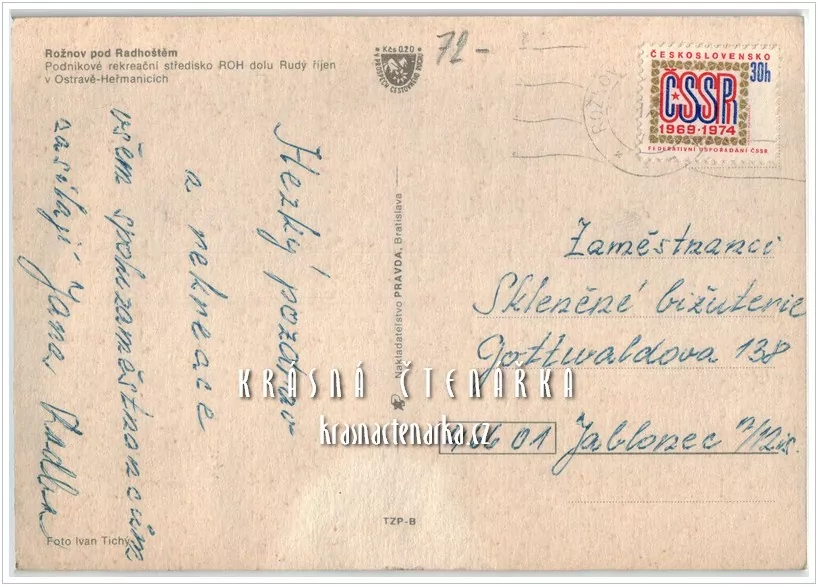 Rožnov pod Radhoštěm
Podnikové rekreační středisko ROH dolu Rudý říjen
v Ostravě-Heřmanicích
Kčs 0,20
72-
ROŽNOV
ČESKOSLOVENSKO
30h
ČSSR
1969-1974
FEDERATIVNÍ USPOŘÁDÁNÍ ČSSR
Hezký pozdrav
z rekreace
všem spoluzaměstnancům
zasílají Jana,
Nakladatelstvo PRAVDA, Bratislava
Zaměstnanci
Skleněné bižuterie
Gottwaldova 138
466 01 Jablonec n/Nis.
KRÁSNÁ ČTENÁŘKA
krasnactenarka.cz
TZP-B
Foto Ivan Tichý